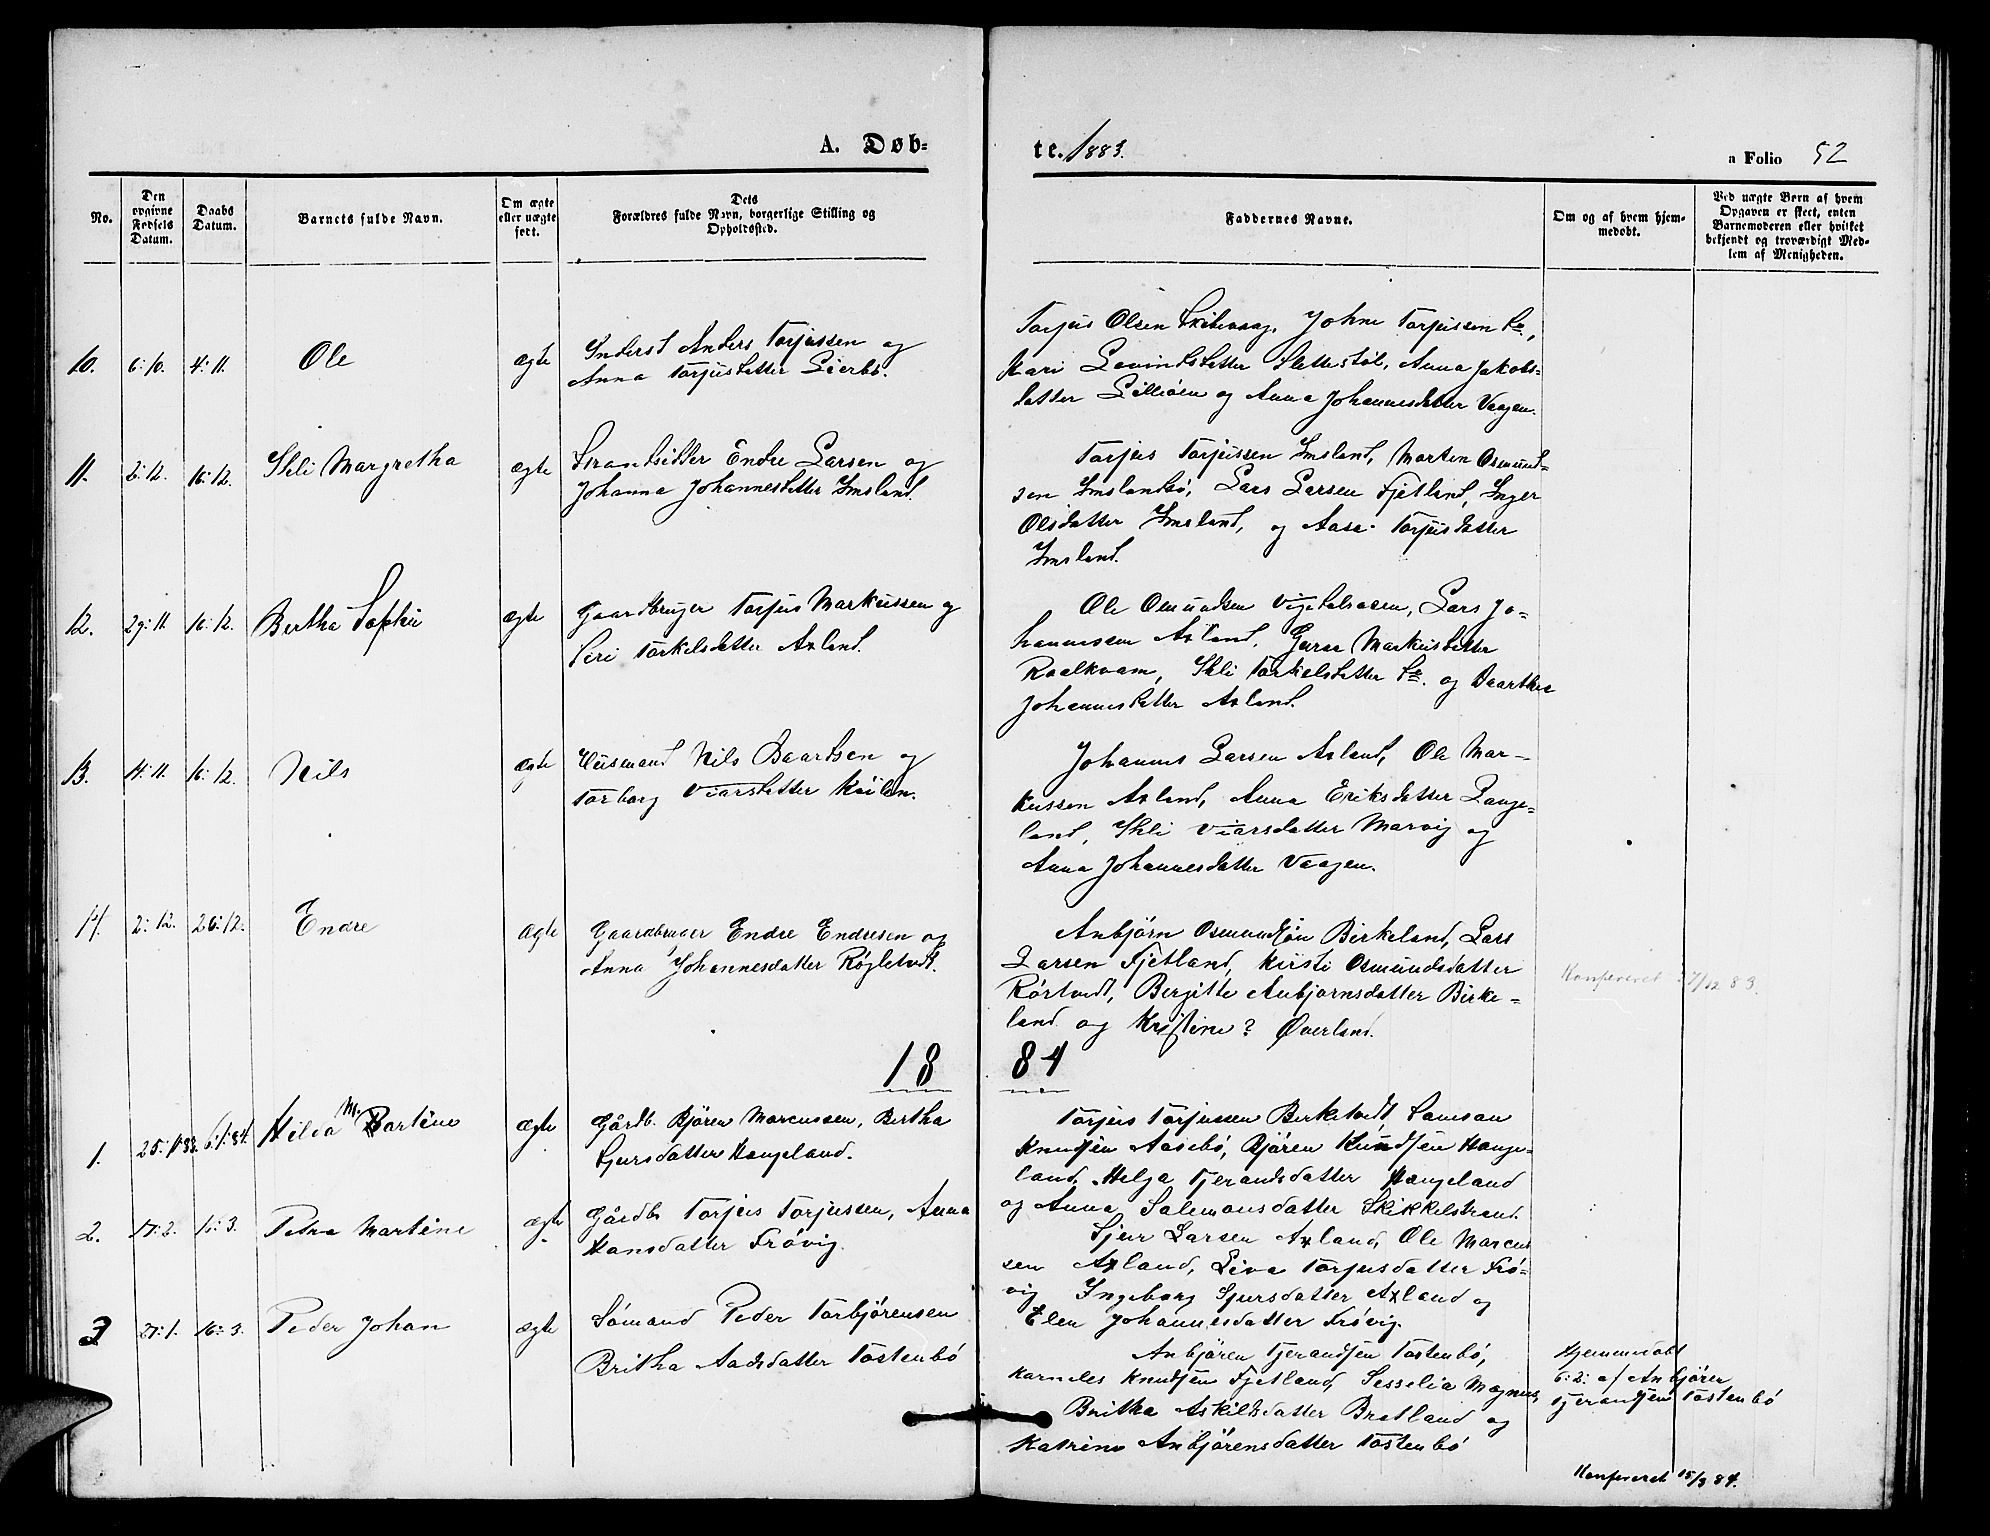 A. Døb-
te. 1883.
a Folio 52
No.
Den opgivne Fødsels Datum.
Daabs Datum.
Barnets fulde Navn.
Om ægte eller uægte født.
Dets
Forældres fulde Navn, borgerlige Stilling og
Opholdssted.
Faddernes Navne.
Om og af hvem hjem-
medøbt.
Ved uægte Børn af hvem
Opgaven er skeet, enten
Barnemoderen eller hvilket
bekjendt og troværdigt Med-
lem af Menigheden.
10. 6:10. 4:11. Ole ægte
Inderst Anders Torjussen og
Anna Torjusdatter Leerbø.
Torjus Olsen Skibevaag, Johne Torjussen
Mari Davidsdatter Slettestøl, Anna Jakobs-
datter og Anna Johannesdatter Vaagen.
11. 2:12. 16:12. Skli Margretha ægte
Strandsidder Endre Larsen og
Johanna Johannesdatter Imsland.
Torjus Torjussen Imsland, Morten Osmund-
sen Imslandbø, Lars Larsen Fjetland, Inger
Olsdatter Imsland, og Aase Torjusdatter
Imsland.
12. 29:11. 16:12. Bertha Sophie ægte
Gaardbruger Torjus Markussen og
Siri Torkelsdatter Axland.
Ole Osmundsen Vigedalsosen, Lars Jo-
hannessen Axland, Guroe Markusdatter
Roalkvam, Skli Torkelsdatter og Baarthee
Johannesdatter Axland.
13. 11:11. 16:12. Nils ægte
Husmand Nils Baardsen og
Torborg Viarsdatter Kvilen.
Johannes Larsen Axland, Ole Mar-
kussen Axland, Anna Eriksdatter Lange-
land, Skli Viarsdatter Marvig og
Anna Johannesdatter Vaagen.
14. 2:12. 26:12. Endre ægte
Gaardbruger Endre Endresen og
Anna Johannesdatter Røgletvedt.
Anbjörn Osmundsøn Birkeland, Lars
Larsen Fjetland, Kirsti Osmundsdatter
Rörtvedt, Bergitte Anbjørnsdatter Birke-
land og Kristine? Øverland.
Konfereret 31/12 83.
18 84
1. 25:11 83. 6:1:84. Hilda M. Bartine ægte
Gårdb. Björen Marcussen, Bertha
Sjursdatter Hangeland.
Torjus Torjussen Birketvedt, Samson
Knudsen Aasebö, Björen Knudsen Hange-
land, Helga Tjerandsdatter Hangeland
og Anna Salemonsdatter Skikkelstrand.
2. 17:2. 16:3. Petra Martine ægte
Gårdb. Torjus Torjussen, Anna
Hansdatter Frövig.
Sjur Larsen Axland, Ole Marcus
sen Axland, Liva Torjusdatter Frö-
vig Ingeborg Sjursdatter Axland og
Elen Johannesdatter Frövig.
3 27:1. 16:3. Peder Johan ægte
Sömand Peder Torbjörensen
Britha Aadsdatter Tostenbö
Anbjören Tjerandsen Tostenbö,
Karneles Knudsen Fjetland, Sesselia Magnus,
Britha Askildsdatter Bratland og
Katrine Anbjörensdatter Tostenbö
Hjemmedøbt
6:2: af Anbjören
Tjerandsen Tostenbö
Konfereret 15/3 84.